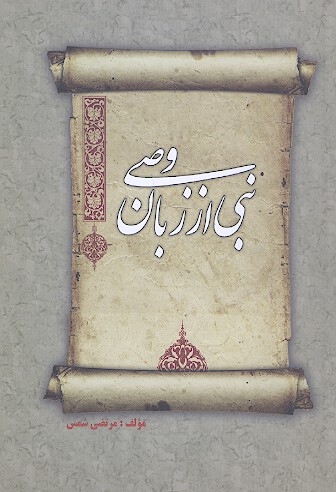 نبی از زبان وصی
مؤلف : مرتضی شمس